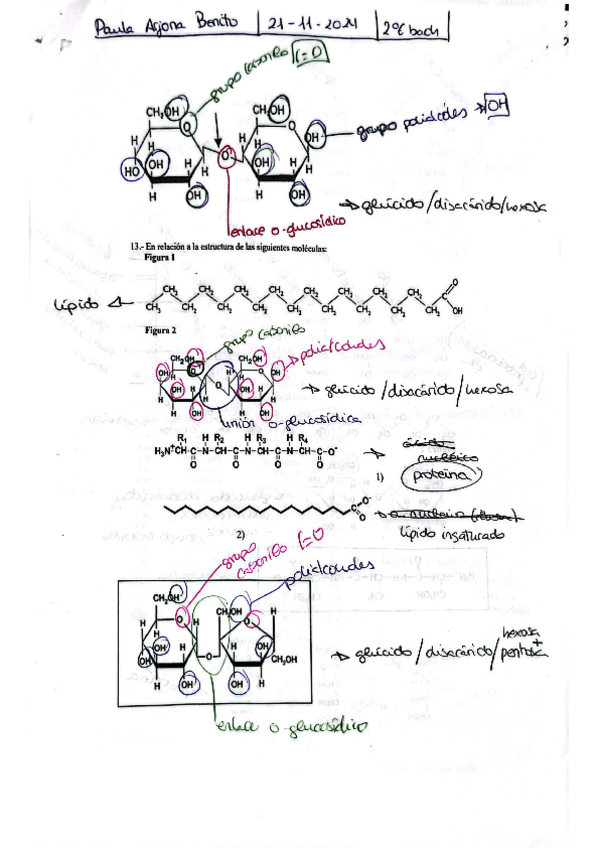 Paula Arjona Benito | 21-11-2024 | 2ºC bach
grupo carbonilo C=O
CH₂OH CH₂OH
O O OH grupo polialcoles → OH
H H H H
HO OH H O OH H
H OH H OH
→ glúcido/disacárido/hexosa
enlace o-glucosídico
13.- En relación a la estructura de las siguientes moléculas:
Figura 1
lípido ← CH₃ CH₂ CH₂ CH₂ CH₂ CH₂ CH₂ CH₂ CH₂ CH₂ CH₂ CH₂ CH₂ CH₂ CH₂ C O OH
Figura 2
grupo carbonilo
CH₂OH CH₂OH → polialcoholes
OH O O OH
OH O OH
H OH H OH
→ glúcido/disacárido/hexosa
unión o-glucosídica
R₁ H R₂ H R₃ H R₄
H₃N⁺CH-C-N-CH-C-N-CH-C-N-CH-C-O⁻
O O O O
→ ácido nucleico
1) proteína
C O⁻ O
lípido insaturado
2)
grupo carbonilo C=O
polialcoholes
CH₂OH CH₂OH
H O H O H
OH H O H OH
OH CH₂OH
H OH OH H
→ glúcido/disacárido/hexosa + pentosa
enlace o-glucosídico